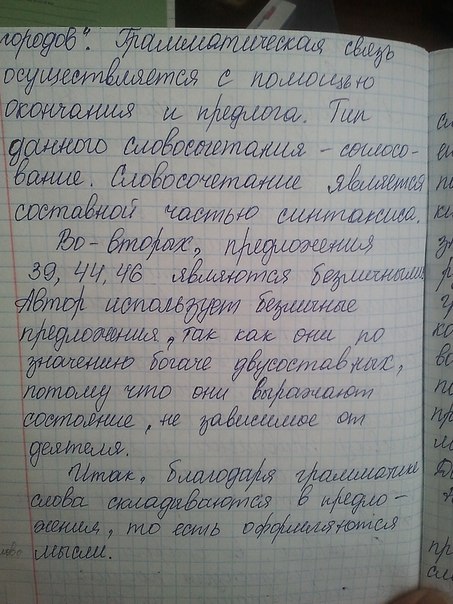 городов". Грамматическая связь
осуществляется с помощью
окончания и предлога. Тип
данного словосочетания – согласо-
вание. Словосочетание является
составной частью синтаксиса.
Во-вторах, предложения
39, 44, 46 являются безличными.
Автор использует безличные
предложения, так как они по
значению богаче двусоставных,
потому что они выражают
состояние, не зависимое от
деятеля.
Итак, благодаря грамматике
слова складываются в предло-
жения, то есть оформляются
мысли.